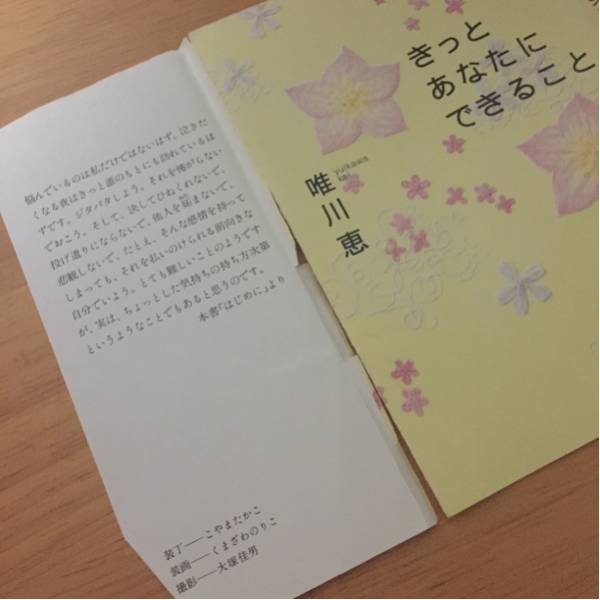 きっと
あなたに
できること
yuikawa
kei
唯川恵
悩んでいるのは私だけではないはず。泣きた
くなる夜はきっと誰のもとにも訪れているは
ずです。ジタバタしよう。それを怖がらない
でおこう。そして、決してひねくれないで、
投げ遣りにならないで、他人を妬まないで、
悲観しないで。たとえ、そんな感情を持って
しまっても、それを払いのけられる前向きな
自分でいよう。とても難しいことのようです
が、実は、ちょっとした気持ちの持ち方次第
というようなことでもあると思うのです。
本書「はじめに」より
装丁――こやまたかこ
装画――くまざわのりこ
撮影――大塚佳男